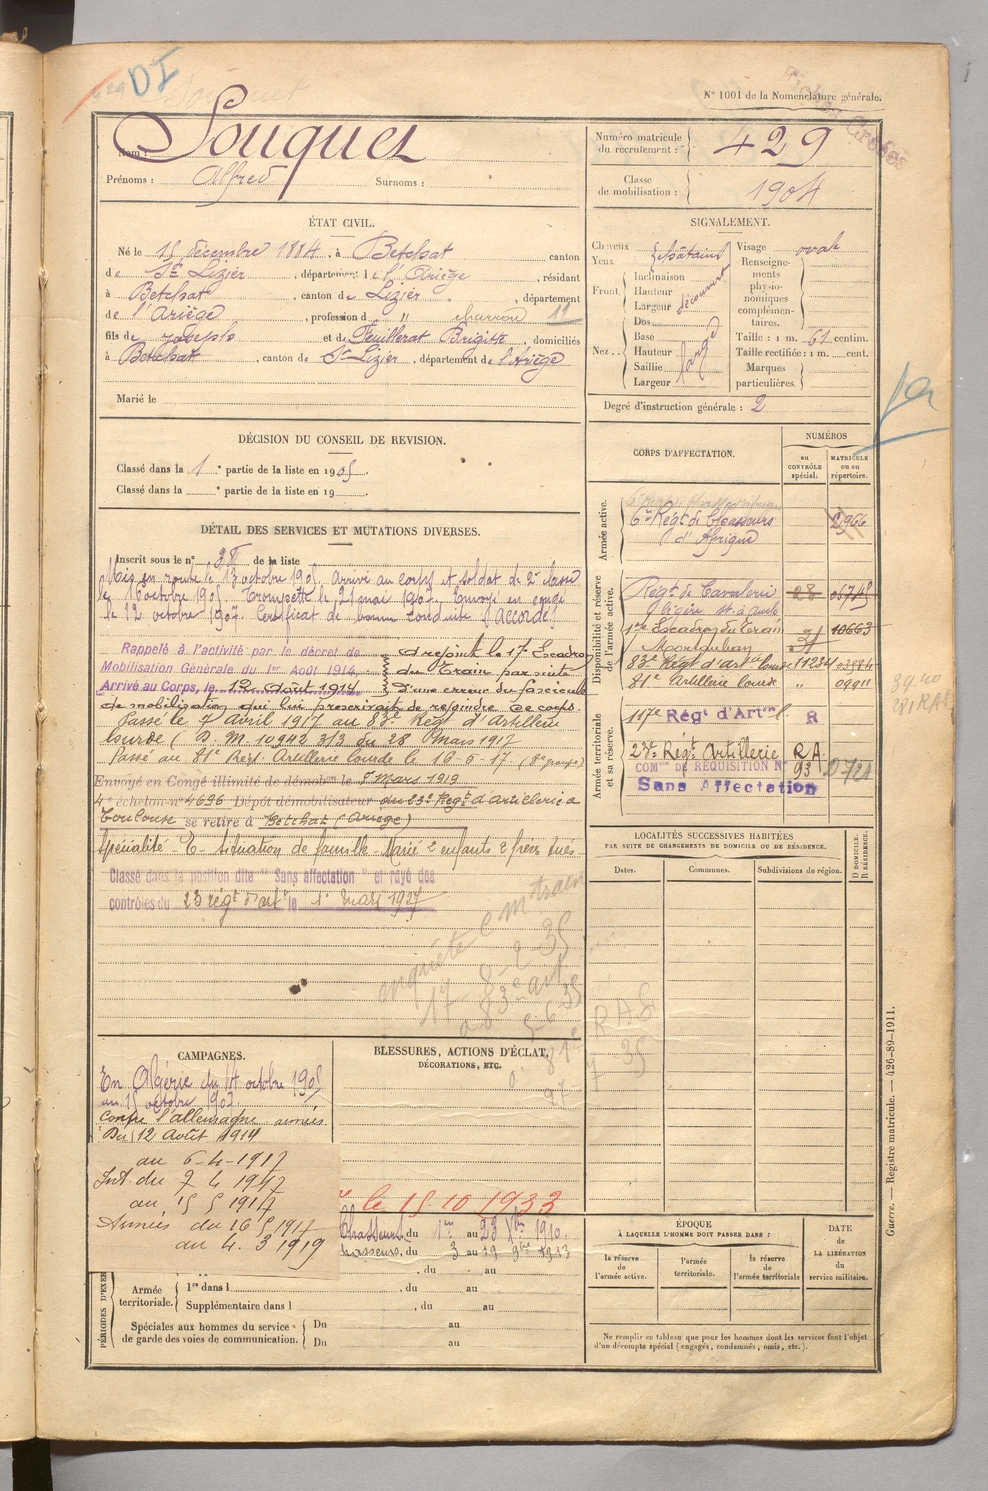 DI
N° 1001 de la Nomenclature générale.
Nom : Souquet
Prénoms : Alfred Surnoms :
Numéro matricule du recrutement : 429
Classe de mobilisation : 1904
ÉTAT CIVIL.
Né le 15 décembre 1884, à Betchat canton
de St Lizier, département de l'Ariège, résidant
à Betchat, canton de Lizier, département
de l'Ariège, profession d " charron 11
fils de Joseph et de Feuillerat Brigitte, domiciliés
à Betchat, canton de St Lizier, département de l'Ariège
Marié le
SIGNALEMENT.
Cheveux
Yeux
châtains
Front.
Inclinaison
Hauteur
Largeur
découvert
Nez..
Dos
Base
Hauteur
Saillie
Largeur
large
Visage ovale
Renseignements physionomiques complémentaires.
Taille : 1 m. 61 centim.
Taille rectifiée : 1 m. cent.
Marques particulières.
Degré d'instruction générale : 2
DÉCISION DU CONSEIL DE REVISION.
Classé dans la 1e partie de la liste en 1905.
Classé dans la e partie de la liste en 19
DÉTAIL DES SERVICES ET MUTATIONS DIVERSES.
Inscrit sous le n° 38 de la liste
Mis en route le 13 octobre 1905. Arrivé au corps et soldat de 2e classe
le 16 octobre 1905. Trompette le 21 mai 1907. Envoyé en congé
le 12 octobre 1907. Certificat de bonne conduite "accordé"
Rappelé à l'activité par le décret de
Mobilisation Générale du 1er Août 1914
Arrivé au Corps, le 12 Août 1914
a rejoint le 17e Escadron
du Train par suite
d'une erreur du fascicule
de mobilisation qui lui prescrivait de rejoindre ce corps.
Passé le 7 Avril 1917 au 83e Régt d'Artillerie
lourde (D. M. 10942 3/3 du 28 Mars 1917
Passé au 81e Régt Artillerie lourde le 16-5-17 (8e groupe)
Envoyé en Congé illimité de démobon le 5 Mars 1919
4e échelon n° 4696 Dépôt démobilisateur du 23e Régt d'Artillerie a
Toulouse se retire à Betchat (Ariège)
Spécialité - E - Situation de famille - Marié 2 enfants 2 frères tués
Classé dans la position dite "Sans affectation" et rayé des
contrôles du 23 régt d'art le 1er mars 1927
enquête C m train
17 8-2 35
a 83e art
5-6-35
RAS
CORPS D'AFFECTATION.
NUMÉROS
au CONTRÔLE spécial.
MATRICULE ou au répertoire.
Armée active.
6e Régt de Chasseurs d'Afrique 2966
Disponibilité et réserve de l'armée active.
Régt de Cavalerie
légère 28
17e Escadron du Train 10663
Montauban
83e Régt d'artie lourde 11234 03984
81e Artillerie lourde " 09911
Armée territoriale et sa réserve.
117e Régt d'Artie l. R
23e Régt Artillerie R.A.
COMon DE REQUISITION N° 93
Sans Affectation
LOCALITÉS SUCCESSIVES HABITÉES
PAR SUITE DE CHANGEMENTS DE DOMICILE OU DE RÉSIDENCE.
Dates.
Communes.
Subdivisions de région.
D DOMICILE. R RÉSIDENCE.
CAMPAGNES.
En Algérie du 14 octobre 1905
au 15 octobre 1907.
Contre l'allemagne armées
Du 12 Août 1914
au 6-4-1917
Int. du 7 4 1917
au 15 5 1917
Armées du 16 5 1917
au 4. 3 1919
BLESSURES, ACTIONS D'ÉCLAT,
DÉCORATIONS, ETC.
le 15.10 1933
Chasseurs du 1er au 23 Xbre 1910.
chasseurs. du 3 au 19 9bre 1913
, du au
PÉRIODES D'EXER
Armée territoriale.
1re dans l , du au
Supplémentaire dans l , du au
Spéciales aux hommes du service de garde des voies de communication.
Du au
Du au
ÉPOQUE
À LAQUELLE L'HOMME DOIT PASSER DANS :
la réserve de l'armée active.
l'armée territoriale.
la réserve de l'armée territoriale
DATE DE LA LIBÉRATION du service militaire.
Ne remplir ce tableau que pour les hommes dont les services font l'objet
d'un décompte spécial (engagés, condamnés, omis, etc.).
Guerre. — Registre matricule. — 426-89-1911.